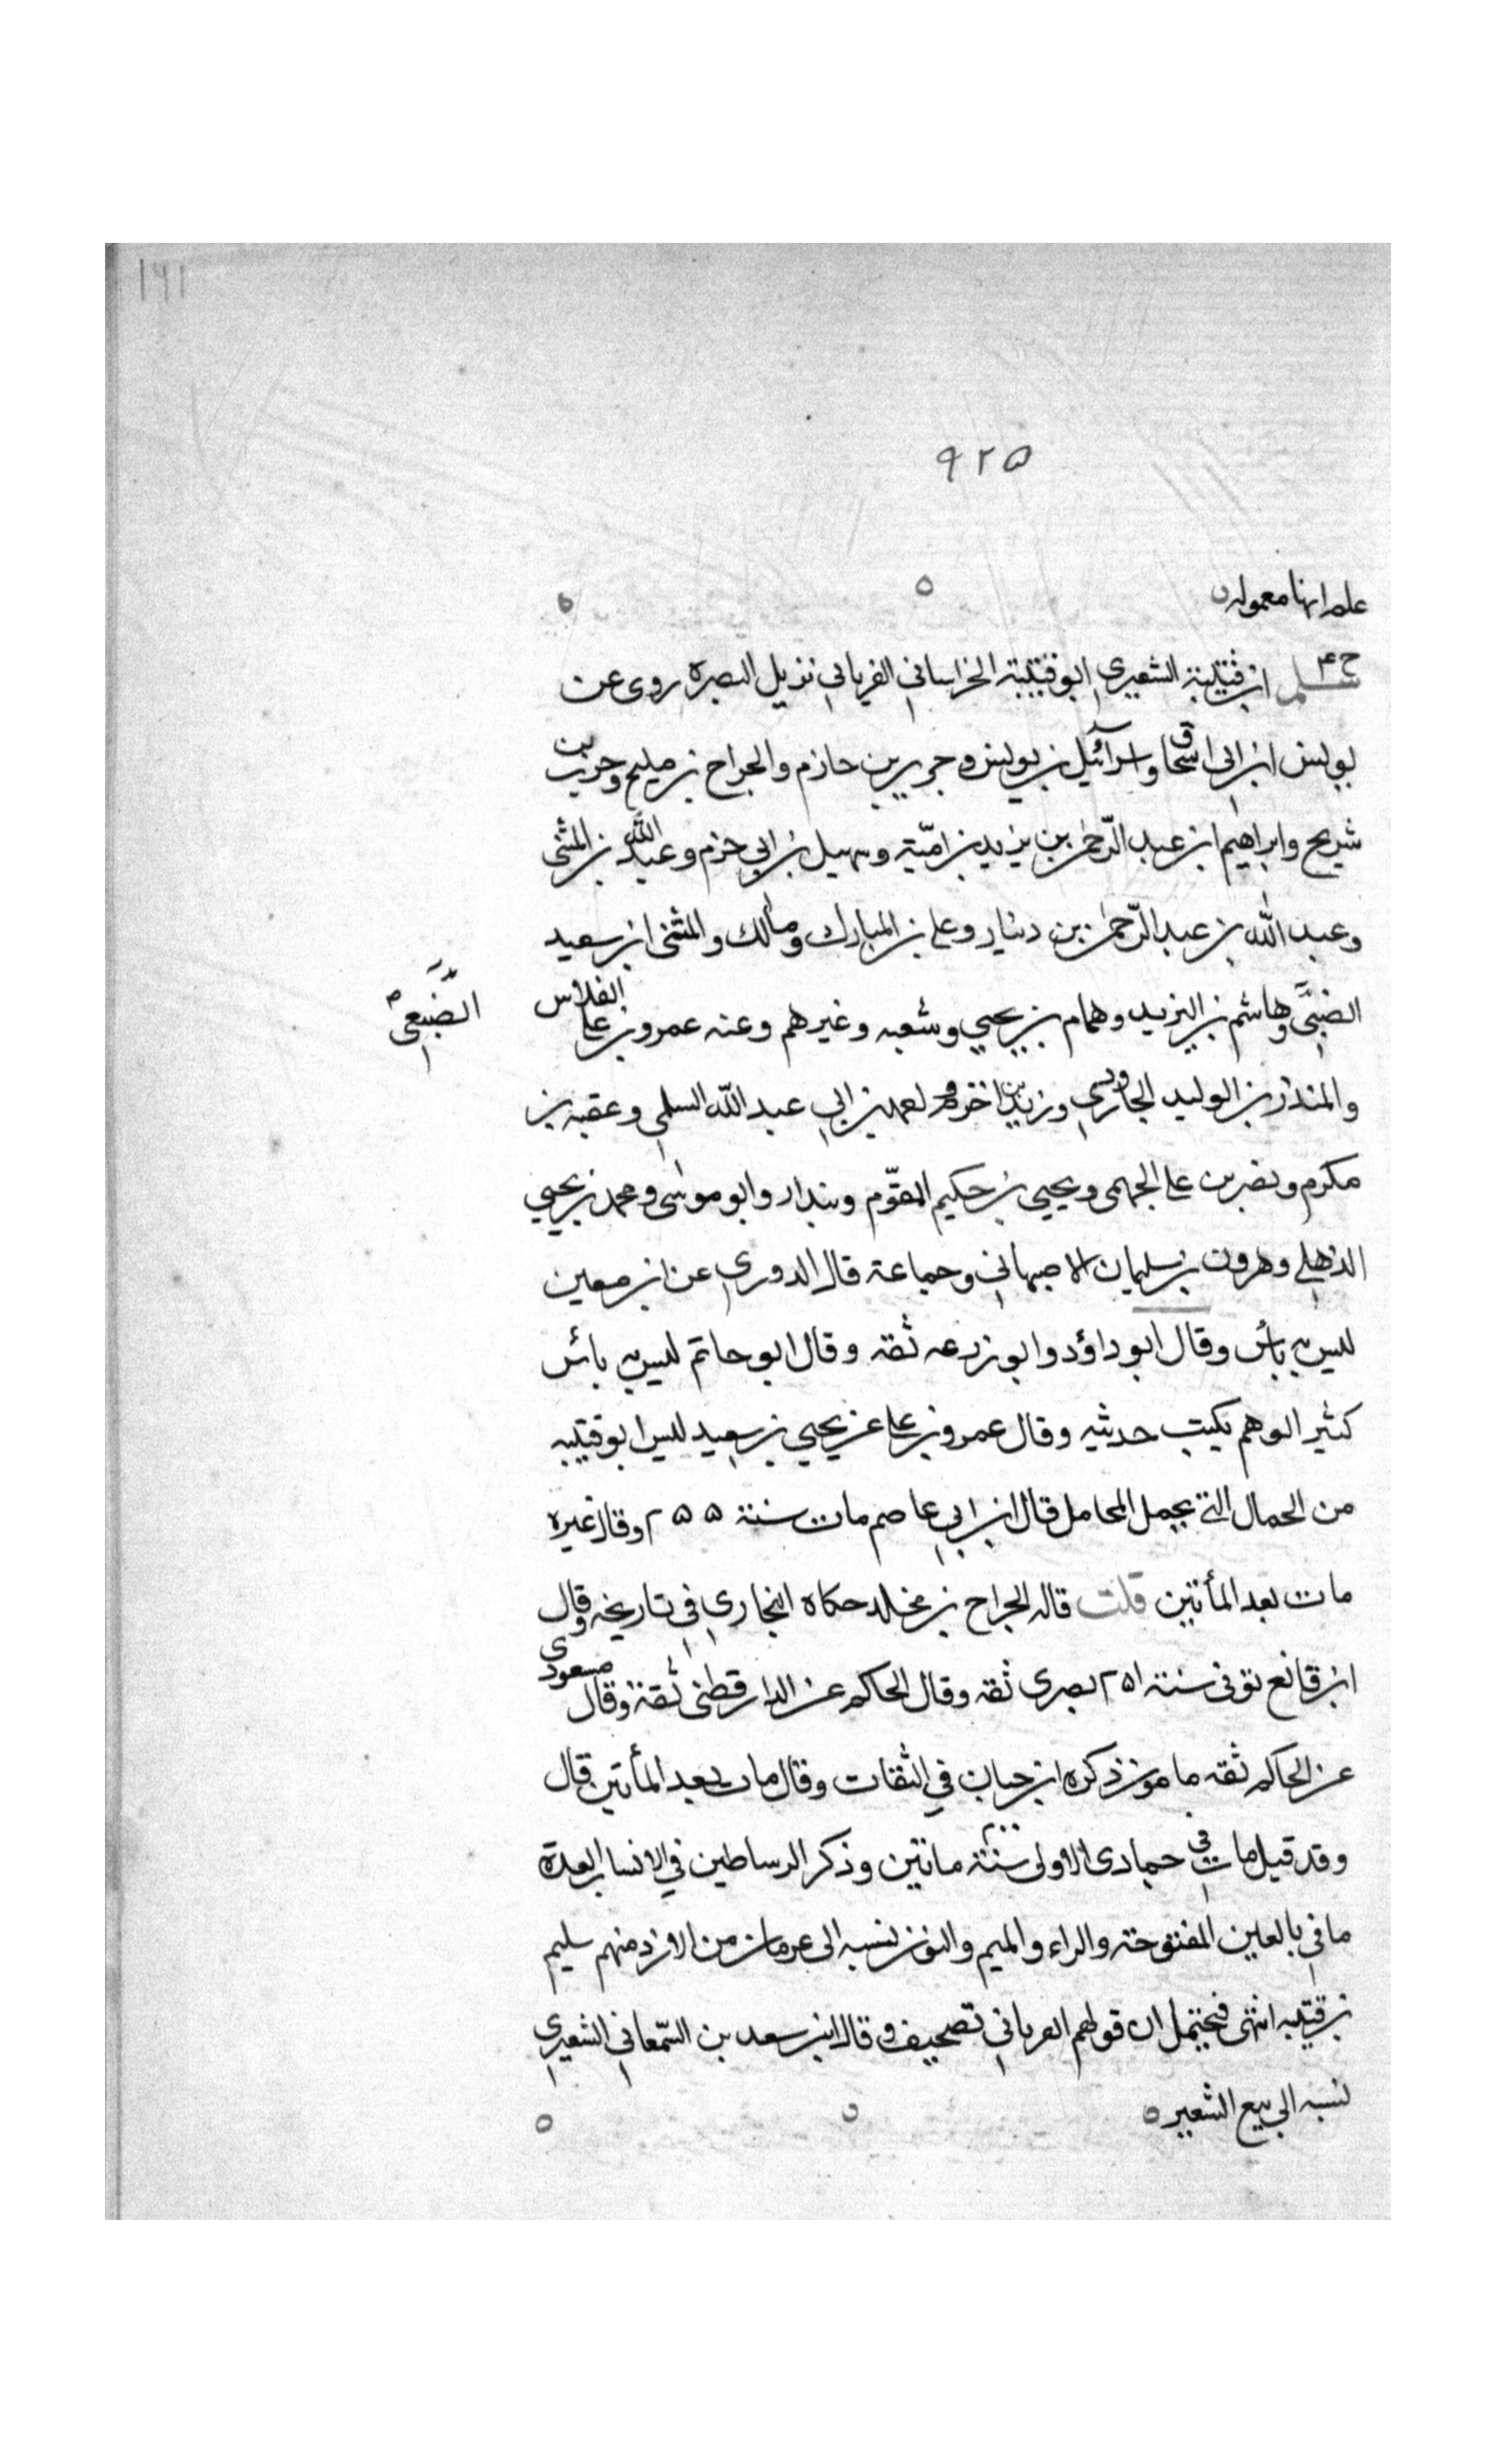 ١٦١
٩٢٥
علم انها معمولة
خ ٤ سلم ابن قتيبة الشعيري ابو قتيبة الخراساني الفريابي نزيل البصرة روى عن
يونس ابن ابى اسحاق واسرآئيل بن يونس و جرير بن حازم والجراح بن مليح وحرب بن
شريح وابراهيم ابن عبد الرّحمٰن بن يزيد بن اميّة وسهيل بن ابي حزم وعبد اللّٰه بن المثنى
وعبد اللّٰه بن عبد الرّحمٰن بن دينار وعلى بن المبارك ومالك والمثنى ابن سعيد
الضبىّ وهاشم بن البزيد وهمام بن يحيي وشعبه وغيرهم وعنه عمرو بن على الفلاس
الضّبعي
والمنذر بن الوليد الجارودي وزيد بن اخزم بن ابي عبد اللّه السلمي وعقبه بن
مكرم ونصر بن على الجهمى ويحيي بن حكيم المقوّم وبندار وابو موسى ومحمد بن يحيي
الذهلي وهرون بن سليمان الاصبهاني وجماعة قال الدوري عن ابن معين
ليس به بأس وقال ابو داؤد وابو زرعه ثقه وقال ابو حاتم ليس به بأس
كثير الوهم يكتب حديثه وقال عمرو بن على عن يحيي بن سعيد ليس ابو قتيبه
من الجمال التي يحمل المحامل قال ابن ابي عاصم مات سنة ٢٥٥ وقال غيره
مات بعد المأتين قلت قاله الجراح بن مخلد حكاه البخاري في تاريخه وقال
ابن قانع توفى سنة ٢٥١ بصرى ثقه وقال الحاكم عن الدارقطنى ثقة وقال مسعودى
عن الحاكم ثقه مامون ذكره ابن حبان في الثقات وقال مات بعد المأتين قال
وقد قيل مات في جمادى الاولى سنة ٢٠٠ مائتين وذكر الرساطين في الانساب العرة
مافي بالعين المفتوحة والراء والميم والنون نسبه الى عرمان من الازد منهم سليم
بن قتيبه انتهى فيحتمل ان قولهم العرباني تصحيف وقال ابن سعد بن السّمعاني الشعيري
نسبه الى بيع الشعير